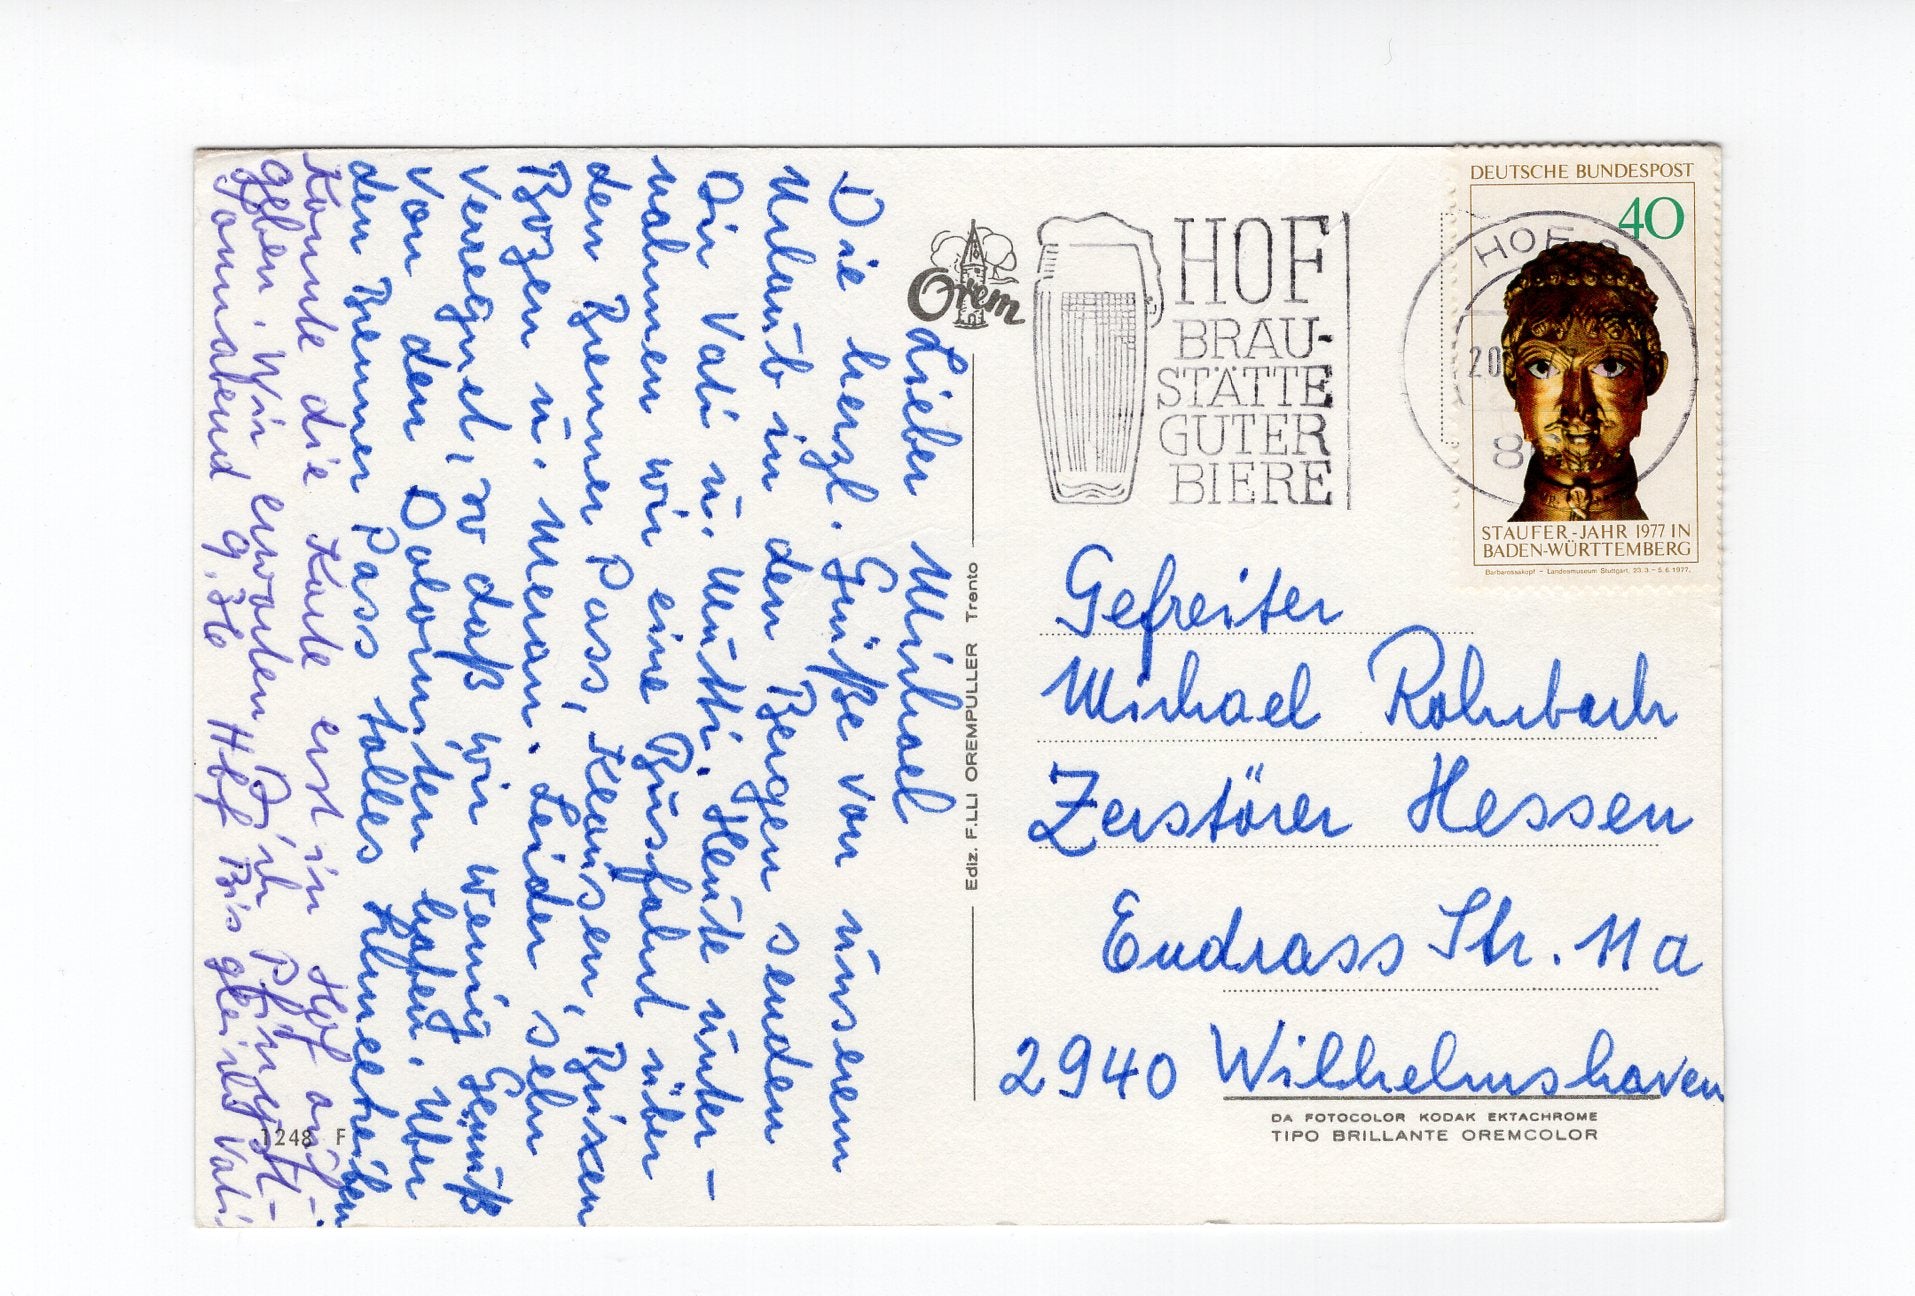 Lieber Michael
Die herzl. Grüße von unserem
Urlaub in den Bergen senden
Dir Vati u. Mutti. Heute unter-
nahmen wir eine Busfahrt über
den Brenner Pass, Klausen, Brixen
Bozen u. Meran. Leider sehr
verregnet, so daß wir wenig Genuß
von den Dolomiten hatten. Über
den Brenner Pass tolles Schneetreiben
Konnte die Karte erst in Hof auf-
geben. Wir erwarten Dich Pfingst-
Sonnabend 9.36 Hbf Bis gleich Vati
1248 F
Orem
Ediz. F.LLI OREMPULLER Trento
HOF
BRAU-
STÄTTE
GUTER
BIERE
HOF
20
8
DEUTSCHE BUNDESPOST
40
STAUFER-JAHR 1977 IN
BADEN-WÜRTTEMBERG
Barbarossakopf – Landesmuseum Stuttgart, 23.3.–5.6.1977.
Gefreiter
Michael Rohrbach
Zerstörer Hessen
Endrass Str. 11a
2940 Wilhelmshaven
DA FOTOCOLOR KODAK EKTACHROME
TIPO BRILLANTE OREMCOLOR